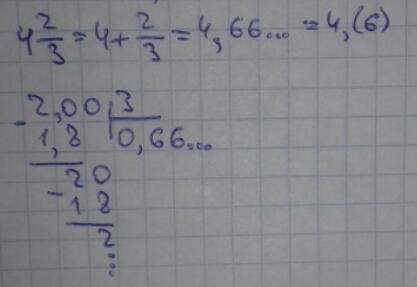 4 2/3 = 4 + 2/3 = 4,66... = 4,(6)
- 2,00 | 3
1,8 | 0,66...
- 20
18
2
...